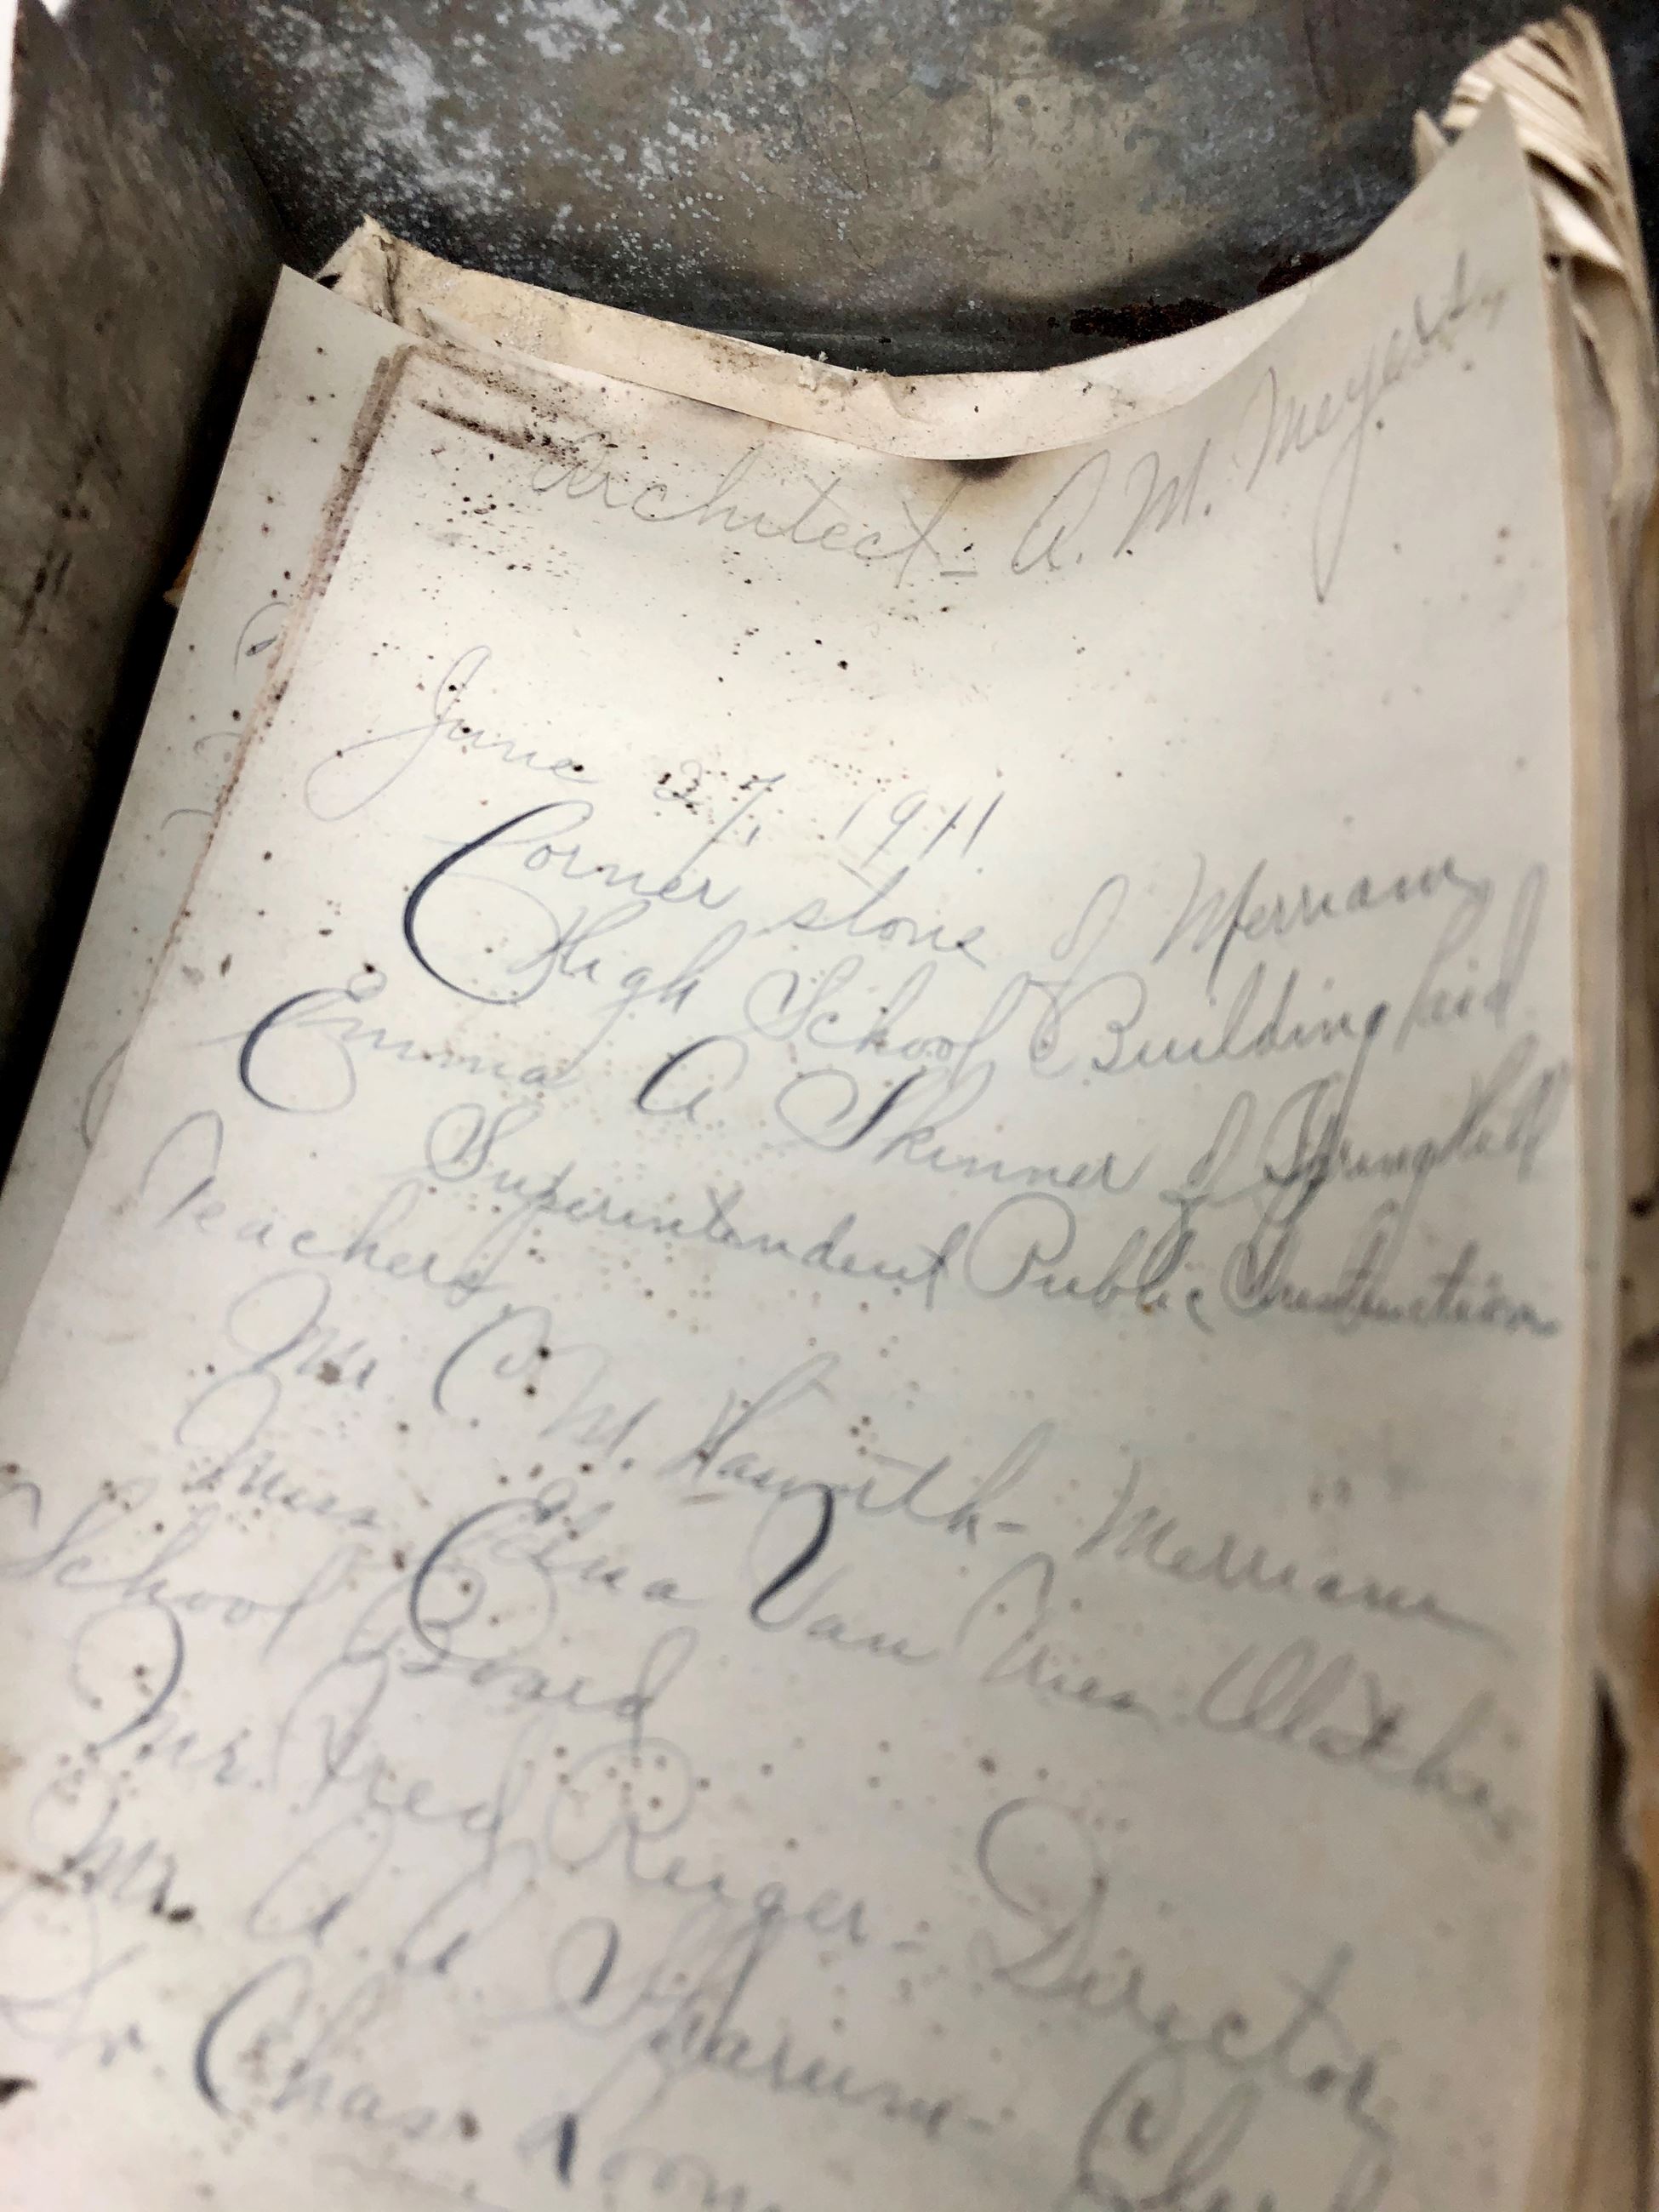 Architect - A. M. Meyers,
June 27, 1911
Corner stone of Merriam
High School Building laid
Emma A Skinner of Springhill
Superintendent Public Instruction
Teachers
Mr C. M. Haworth - Merriam
Miss Edna Van
School Board
Mr. Fred Reiger - Director
Mr. A. A. - Clerk
Dr. Chas